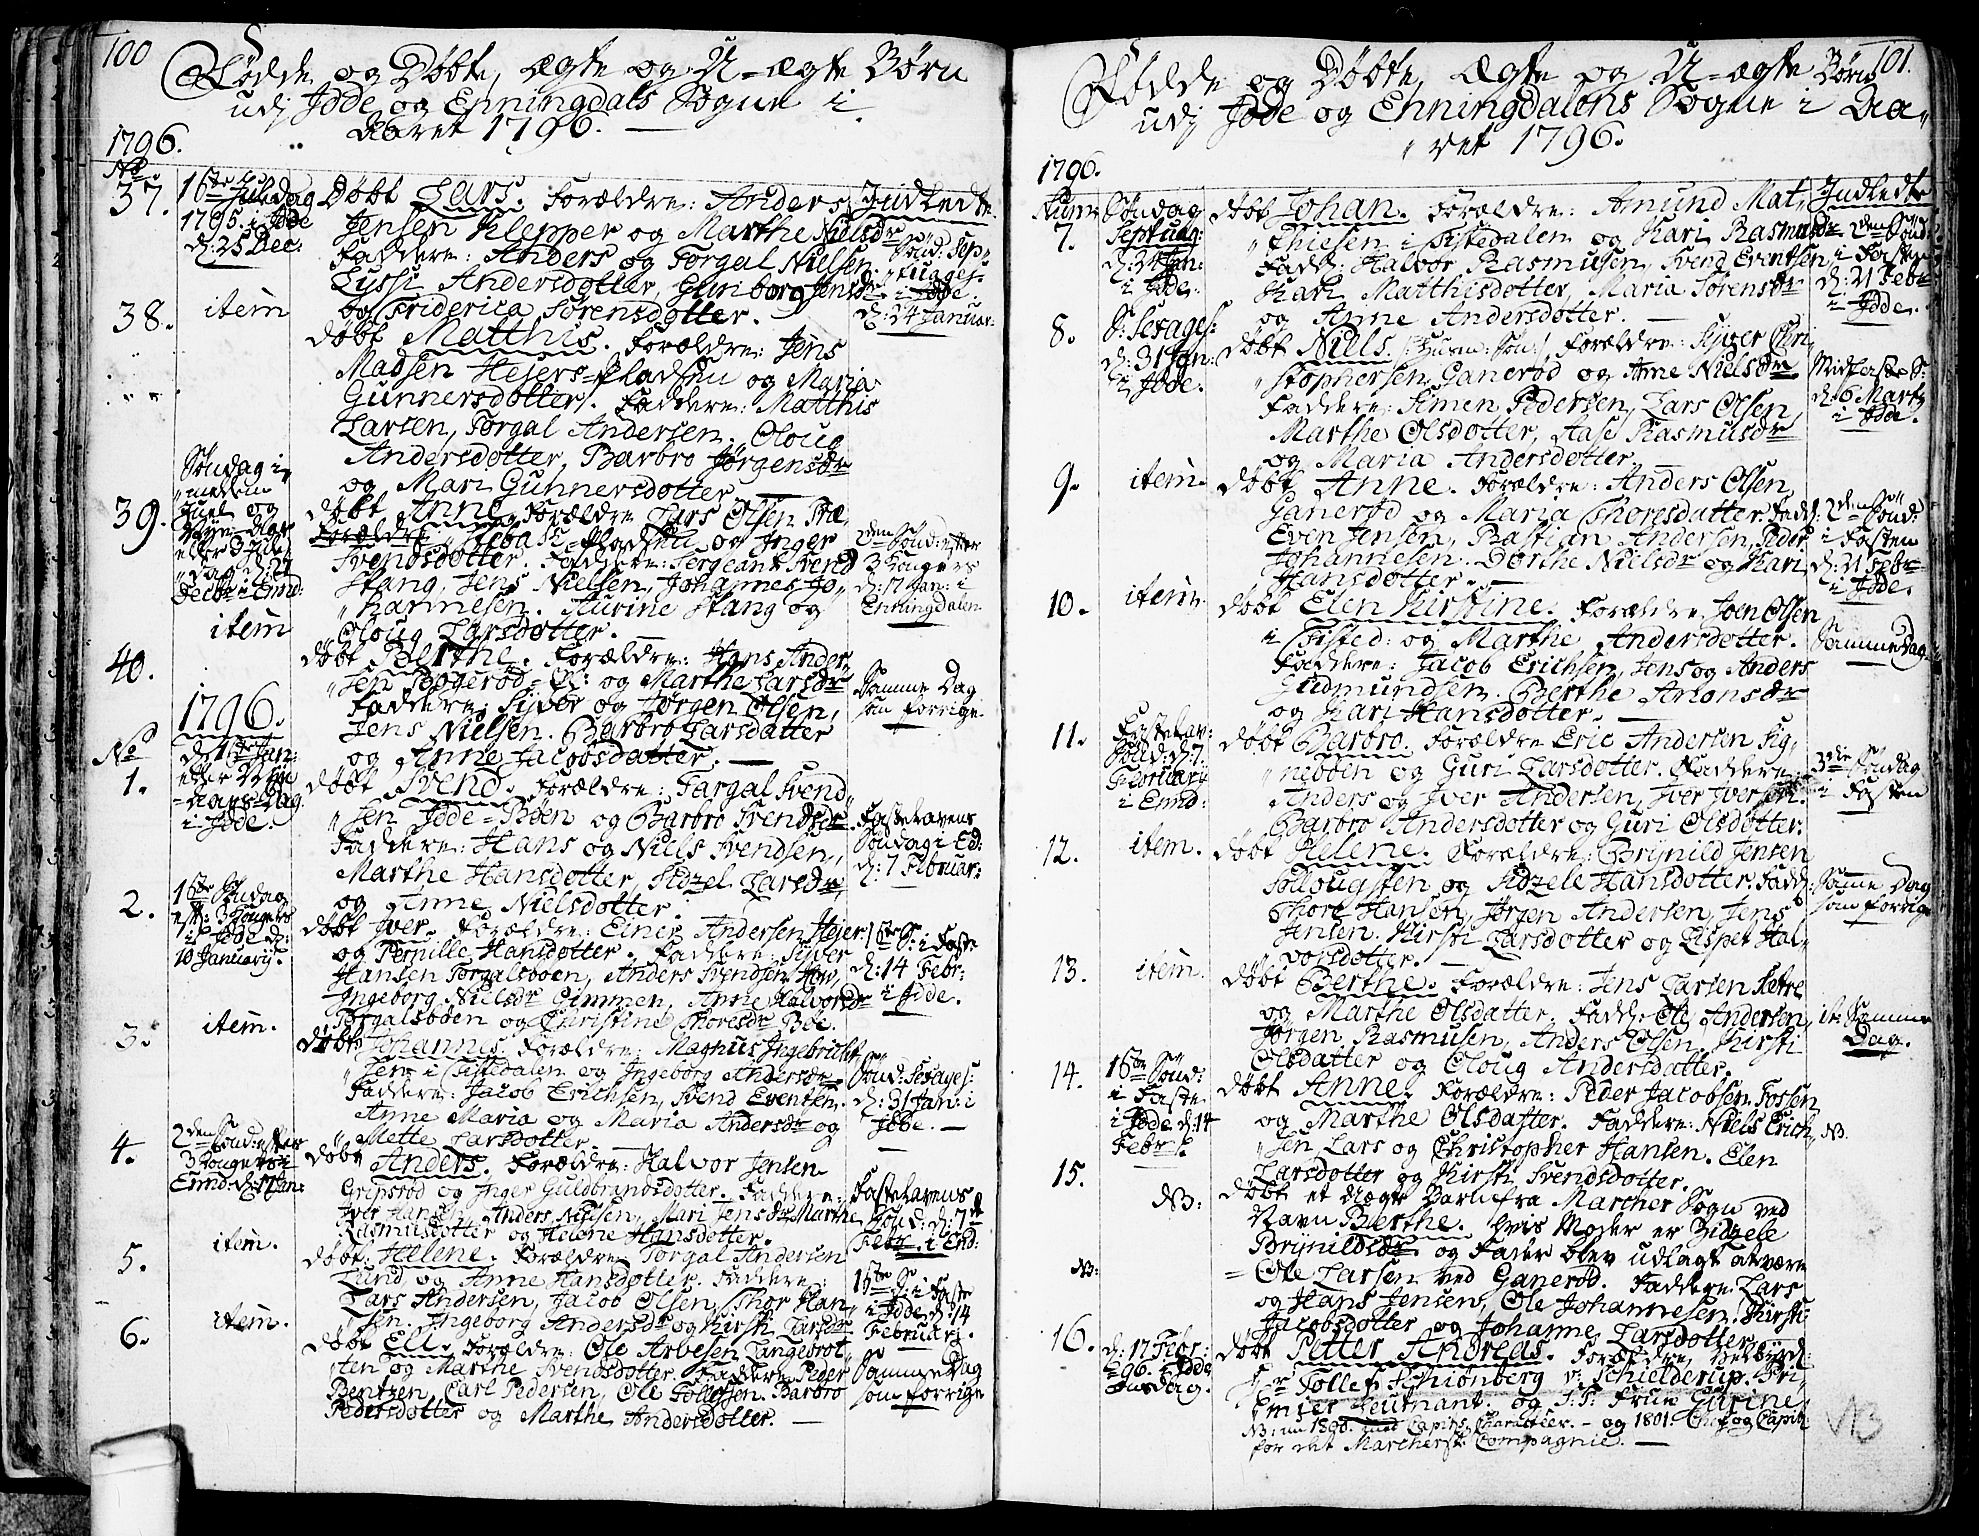 100
Fødde og Døbte, ægte og U-ægte Børn
udj Jdde og Enningdals Sogne i
Aaret 1796.
1796.
No.
37.
16de Juledag
1795. i Jdde
d: 25 Dec:
Døbt Lars. Forældre: Anders
Jensen Klepper og Marthe Nielsdr
Faddere: Anders og Torgal Nielsen
Lyssi Andersdotter, Guriborg Jensdr
og Friderica Sørensdotter.
Jndledte
Sønd: Sep-
tuages-
i Jdde
d: 24 Januar:
38.
item
døbt Matthis. Forældre: Jens
Madsen Hejers-Pladsen og Maria
Gunnersdotter. Faddere: Matthis
Larsen, Torgal Andersen. Oloug
Andersdotter, Barbro Jørgensdr
og Mari Gunnersdotter
39.
Søndag i-
mellem
Juel og
Nyeaar
døbt Anne. Forældre Lars Olsen
Pladsen og Jnger
Svendsdotter. Faddere: Sergeant Svend
Stang, Jens Nielsen, Johannes Jo-
hannesen. Kurine Stang og
Oloug Larsdotter.
2den Sønd: efter
3 Konger
d: 17 Jan: i
Enningdalen
40.
item
døbt Berthe. Forældre: Hans Ander-
sen og Marthe Larsdr
Faddere: Syver og Jørgen Olsen,
Jens Nielsen. Barbro Larsdatter
og Anne Jacobsdatter.
Samme Dag
som forrige
1796.
No
1.
d: 1ste Jan:
eller Nye
-aars-Dag.
i Jdde.
døbt Svend. Forældre: Torgal Svend-
sen Jdde-Bøen og Barbro Svendsdr
Faddere: Hans og Niels Svendsen,
Marthe Hansdotter, Sidzel Larsdr
og Anne Nielsdotter.
Fastelavens
Søndag i Ed:
d: 7 Februar:
2.
1ste Søndag
eft: 3 Konger
i Jdde d:
10 Januarij.
døbt Jver. Forældre: Einer Andersen Hejer
og Pernille Hansdotter. Faddere: Syver
Hansen Torgalsbøen, Anders Svendsen
Jngeborg Nielsdr Gimmen, Anne Halvorsdr
Torgalsbøen og Christine Thoresdr Bøe.
1ste S: i Faste
d: 14 Febr:
i Jdde.
3.
item.
døbt Johannes Forældre: Magnus Jngebricht-
sen i Tistedalen og Jngeborg Andersdr
Faddere: Jacob Erichsen, Svend Eventsen.
Anne Maria og Maria Andersdr og
Mette Larsdotter.
Sønd: Sexages:
d: 31 Jan: i
Jdde.
4.
2den Sønd: efter
3 Konger i
Ennd: d: 17 Jan:
døbt Anders. Forældre: Halvor Jensen
Gripsrød og Jnger Guldbrandsdotter. Faddere:
Jver Hansen, Anders Nielsen, Mari Jensdr Marthe
Rasmusdotter og Helene Hansdotter.
Fastelavens
Sønd: d: 7de
Febr. i End:
5.
item.
døbt Helene. Forældre: Torgal Andersen
Lund og Anne Hansdotter. Faddere:
Lars Andersen, Jacob Olsen, Thor Han-
sen. Jngeborg Andersdr og Kirsti Larsdr
1ste S: i Faste
i Jdde d: 14
Februarj.
6.
item.
døbt Ell. Forældre: Ole Arvesen Langebrot
ten og Marthe Svendsdotter. Faddere Peder
Bentzen, Carl Pedersen, Ole Tollefsen. Barbro
Pedersdotter og Marthe Andersdotter.
Samme Dag
som forrige
101.
Fødde og Døbte, ægte og U-ægte Børn
udj Jdde og Enningdalens Sogne i Aa-
ret 1796.
1796.
Num:
7.
Søndag
Septuag:
d: 24 Jan:
i Jdde.
døbt Johan. Forældre: Amund Mat-
thiesen i Tistedalen og Kari Rasmusdr
Fadd: Halvor Rasmusen, Svend Eventsen
Kari Matthisdotter, Maria Sørensdr
og Anne Andersdotter.
Jndledte
2den Sønd:
i Fasten
d: 21 Febr
i Jdde.
8.
S: Sexages:
d: 31 Jan:
i Jdde.
døbt Niels. Forældre: Syver Chri-
stophersen Ganerød og Anne Nielsdr
Faddere: Simen Pedersen, Lars Olsen,
Marthe Olsdotter, Aase Rasmusdr
og Maria Andersdotter
Midfaste S:
d: 6 Martj
i Jdde.
9.
item.
døbt Anne. Forældre: Anders Olsen
Ganerød og Maria Thoresdatter. Fadd:
Even Jensen, Bastian Andersen, Peder
Johannesen. Dorthe Nielsdr og Kari
Hansdotter.
2den Sønd:
i Fasten
d: 21 Febr
i Jdde.
10.
item
døbt Elen Kirstine. Forældre Joen Olsen
i Tisted: og Marthe Andersdotter.
Faddere: Jacob Erichsen, Jens og Anders
Gudmundsen. Berthe Amonsdr
og Kari Hansdotter.
Samme Dag
11.
Fastelav:
Sønd: d: 7
Februarj
i Ennd:
døbt Barbro. Forældre Eric Andersen
og Guri Larsdotter. Faddere:
Anders og Jver Andersen, Jver Jversen.
Barbro Andersdotter og Guri Olsdotter.
3die Søndag
i Fasten
12.
item.
døbt Helene. Forældre: Brynild Jensen
og Sidzele Hansdotter. Fadd:
Thore Hansen, Jørgen Andersen, Jens
Jensen. Kirsti Larsdotter og Lispet Hal-
vorsdotter.
Samme Dag
som forrige
13.
item.
døbt Berthe. Forældre: Jens Larsen
og Marthe Olsdatter. Fadd: Ole Andersen,
Jørgen Rasmusen, Anders Olsen. Kirsti
Olsdatter og Oloug Andersdatter.
it: Samme
Dag.
14.
1ste Sønd:
i Faste
i Jdde d: 14
Febr
døbt Anne. Forældre: Peder Jacobsen Fossen
og Marthe Olsdatter. Faddere: Niels Erich-
sen Lars og Christopher Hansen. Elen
Larsdotter og Kirsti Svendsdotter.
NB.
15.
NB:
døbt et uægte Barn fra Marcher Sogn ved
Navn Berthe. hvis Moder er Zidzele
Brynildsdr og Fader blev udlagt at være
Ole Larsen ved Ganerød. Faddere Lars
og Hans Jensen, Ole Johannesen. Kirsti
Jacobsdotter og Johanne Larsdotter
NB:
16.
d: 17 Febr:
-96. i Jdde
Onsdag.
døbt Petter Andreas. Forældre, Velbyrd:
Hr Tollef Schiønberg v: Schielderup. Pri-
mier Leutnant. og S: T: Frue Eurine
NB: nu 1800. med Capits Character. - og 1801. Chef og Capit:
for det Marcherske Compagnie.
NB